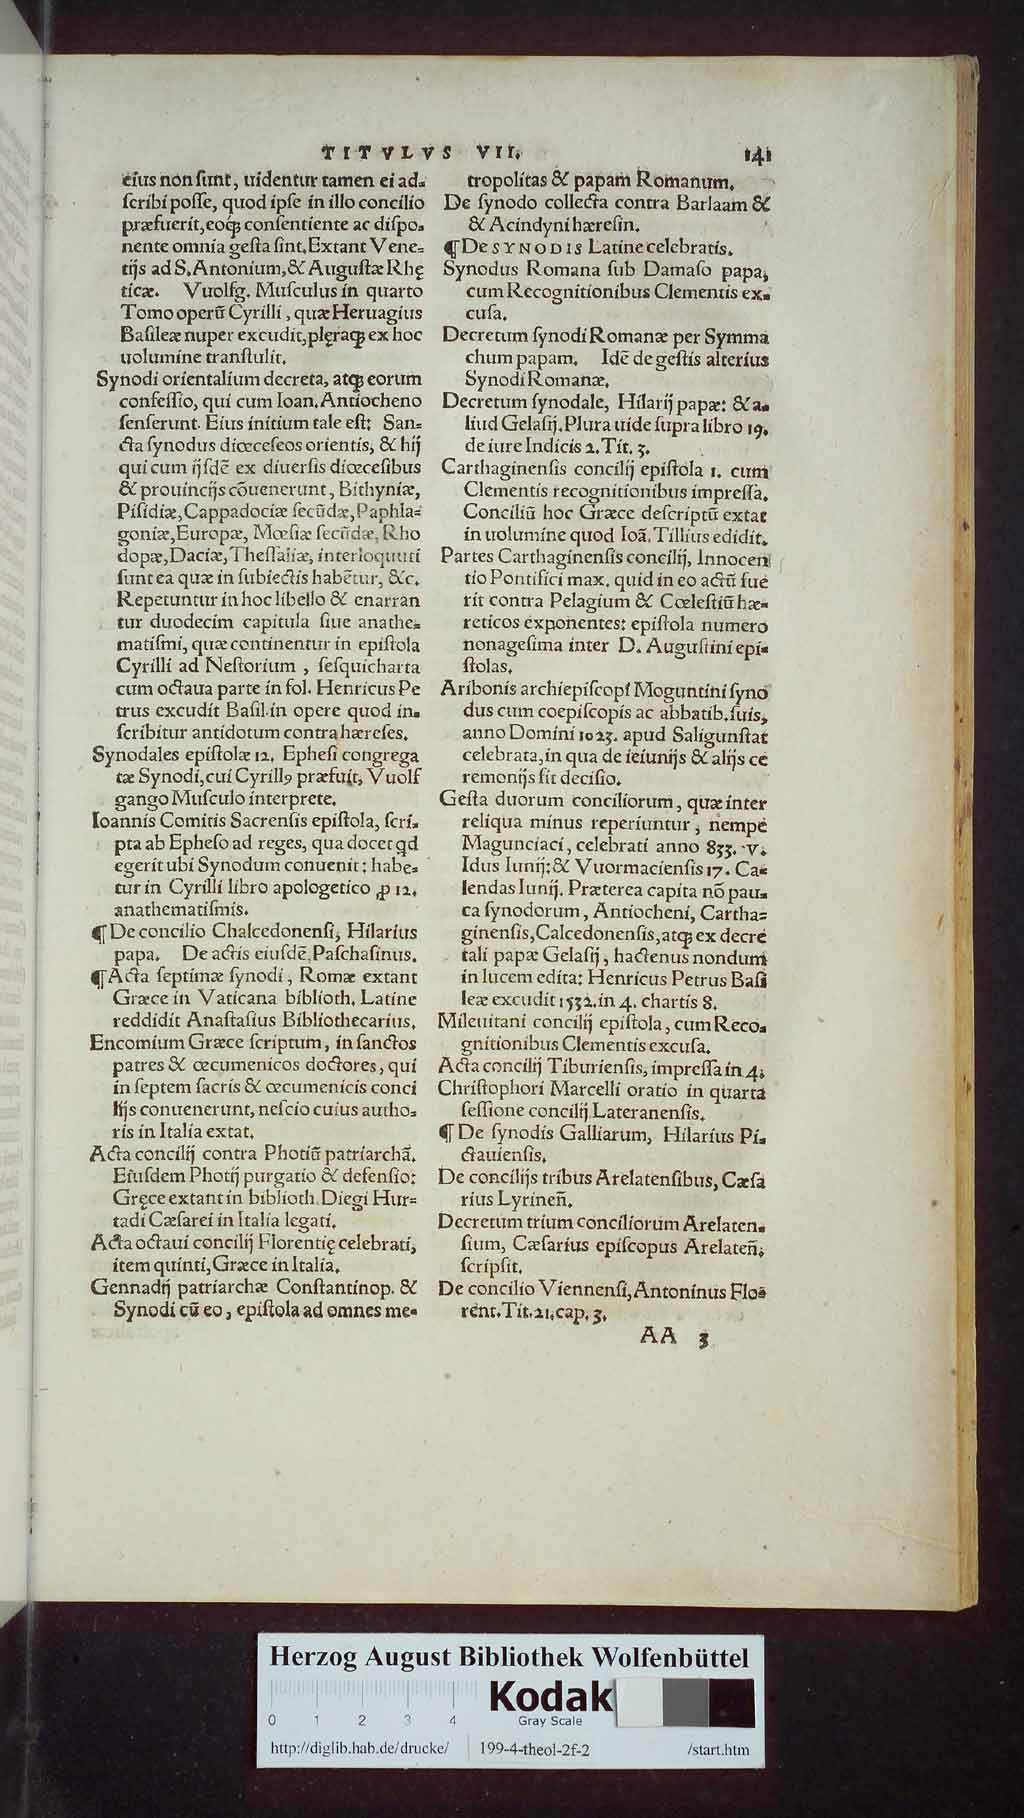 TITVLVS VII. 141
eius non sunt, uidentur tamen ei ad-
scribi posse, quod ipse in illo concilio
præfuerit, eoq; consentiente ac dispo-
nente omnia gesta sint. Extant Vene-
tijs ad S. Antonium, & Augustæ Rhę
ticæ. Vuolfg. Musculus in quarto
Tomo operũ Cyrilli, quæ Heruagius
Basileæ nuper excudit, plęraq; ex hoc
uolumine transtulit.
Synodi orientalium decreta, atq; eorum
confessio, qui cum Ioan. Antiocheno
senserunt. Eius initium tale est: San-
cta synodus diœceseos orientis, & hij
qui cum ijsdẽ ex diuersis diœcesibus
& prouincijs cõuenerunt, Bithyniæ,
Pisidiæ, Cappadociæ secũdæ, Paphla-
goniæ, Europæ, Mœsiæ secũdæ, Rho
dopæ, Daciæ, Thessaliæ, interloquuti
sunt ea quæ in subiectis habẽtur, &c.
Repetuntur in hoc libello & enarran
tur duodecim capitula siue anathe-
matismi, quæ continentur in epistola
Cyrilli ad Nestorium, sesquicharta
cum octaua parte in fol. Henricus Pe
trus excudit Basil. in opere quod in-
scribitur antidotum contra hæreses.
Synodales epistolæ 12. Ephesi congrega
tæ Synodi, cui Cyrillꝰ præfuit, Vuolf
gango Musculo interprete.
Ioannis Comitis Sacrensis epistola, scri-
pta ab Epheso ad reges, qua docet qd
egerit ubi Synodum conuenit: habe-
tur in Cyrilli libro apologetico ꝓ 12.
anathematismis.
¶ De concilio Chalcedonensi, Hilarius
papa. De actis eiusdẽ, Paschasinus.
¶ Acta septimæ synodi, Romæ extant
Græce in Vaticana biblioth. Latine
reddidit Anastasius Bibliothecarius.
Encomium Græce scriptum, in sanctos
patres & œcumenicos doctores, qui
in septem sacris & œcumenicis conci
lijs conuenerunt, nescio cuius autho-
ris in Italia extat.
Acta concilij contra Photiũ patriarchã.
Eiusdem Photij purgatio & defensio:
Gręce extant in biblioth. Diegi Hur-
tadi Cæsarei in Italia legati.
Acta octaui concilij Florentię celebrati,
item quinti, Græce in Italia.
Gennadij patriarchæ Constantinop. &
Synodi cũ eo, epistola ad omnes me-
tropolitas & papam Romanum.
De synodo collecta contra Barlaam &
& Acindyni hæresin.
¶ De SYNODIS Latine celebratis.
Synodus Romana sub Damaso papa,
cum Recognitionibus Clementis ex-
cusa.
Decretum synodi Romanæ per Symma
chum papam. Idẽ de gestis alterius
Synodi Romanæ.
Decretum synodale, Hilarij papæ: & a-
liud Gelasij. Plura uide supra libro 19.
de iure Indicis 2. Tit. 3.
Carthaginensis concilij epistola 1. cum
Clementis recognitionibus impressa.
Conciliũ hoc Græce descriptũ extat
in uolumine quod Ioã. Tillius edidit.
Partes Carthaginensis concilij, Innocen
tio Pontifici max. quid in eo actũ fue
rit contra Pelagium & Cœlestiũ hæ-
reticos exponentes: epistola numero
nonagesima inter D. Augustini epi-
stolas.
Aribonis archiepiscopi Moguntini syno
dus cum coepiscopis ac abbatib. suis,
anno Domini 1023. apud Saligunstat
celebrata, in qua de ieiunijs & alijs ce
remonijs fit decisio.
Gesta duorum conciliorum, quæ inter
reliqua minus reperiuntur, nempe
Magunciaci, celebrati anno 833. V.
Idus Iunij: & Vuormaciensis 17. Ca-
lendas Iunij. Præterea capita nõ pau-
ca synodorum, Antiocheni, Cartha-
ginensis, Calcedonensis, atq; ex decre
tali papæ Gelasij, hactenus nondum
in lucem edita: Henricus Petrus Basi
leæ excudit 1532. in 4. chartis 8.
Mileuitani concilij epistola, cum Reco-
gnitionibus Clementis excusa.
Acta concilij Tiburiensis, impressa in 4.
Christophori Marcelli oratio in quarta
sessione concilij Lateranensis.
¶ De synodis Galliarum, Hilarius Pi-
ctauiensis.
De concilijs tribus Arelatensibus, Cæsa
rius Lyrineñ.
Decretum trium conciliorum Arelaten-
sium, Cæsarius episcopus Arelateñ,
scripsit.
De concilio Viennensi, Antoninus Flo-
rent. Tit. 21. cap. 3.
AA 3
Herzog August Bibliothek Wolfenbüttel
Kodak
Gray Scale
0 1 2 3 4
http://diglib.hab.de/drucke/ 199-4-theol-2f-2 /start.htm